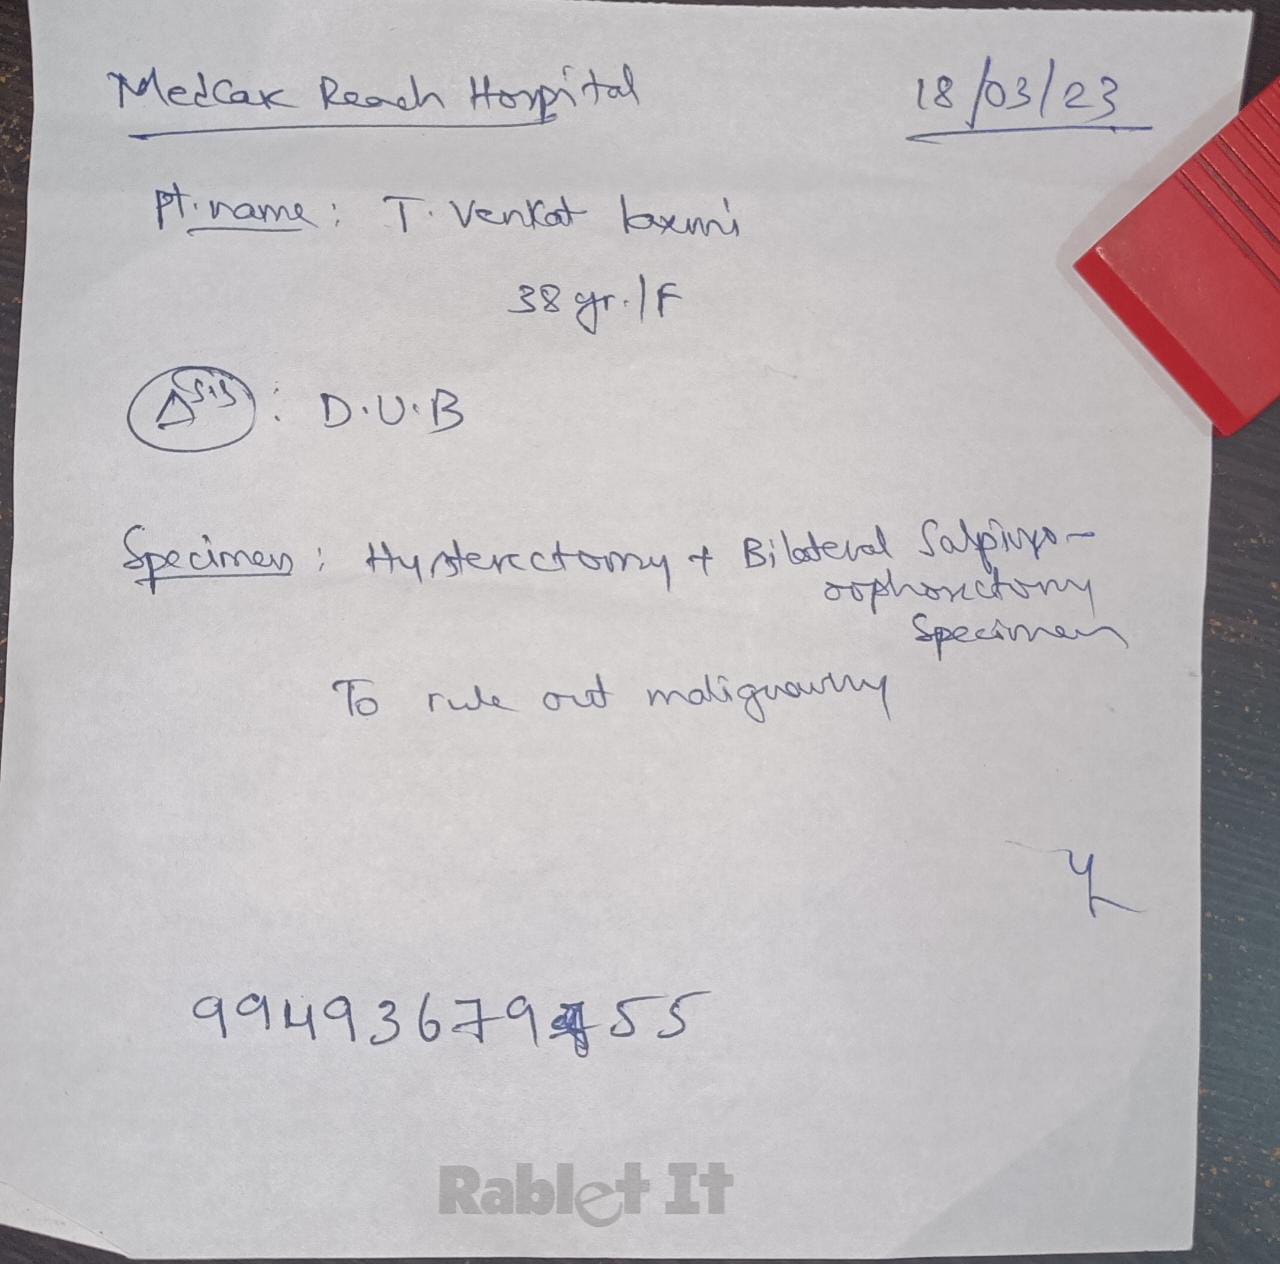 MedCare Reach Hospital 18/03/23
Pt. name : T. Venkat laxmi
38 yr. / F
Δsis : D.U.B
Specimen : Hysterectomy + Bilateral Salpingo-
oophorectomy
Specimen
To rule out malignancy
9949367955
Rablet It